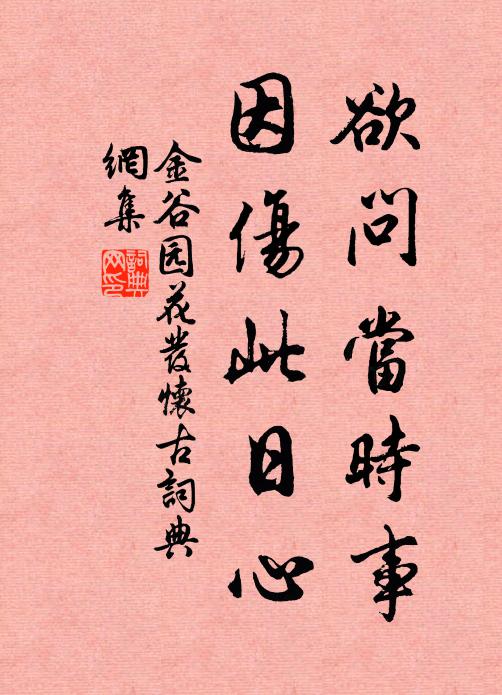 欲問當時事
因傷此日心
金谷园花發懷古詞典
網集
詞典
网印